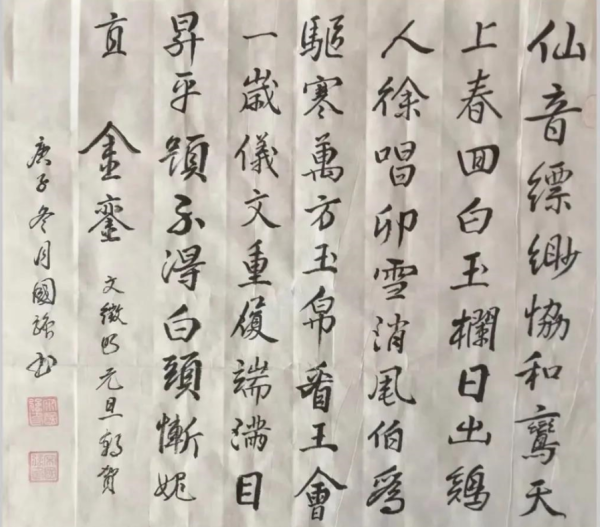 仙音縹緲恊和鸞天
上春回白玉欄日出鷄
人徐唱卯雪消風伯爲
驅寒萬方玉帛看王會
一歲儀文重履端滿目
昇平題不得白頭慚媿
直金鑾
文徵明元旦朝賀
庚子冬月國書